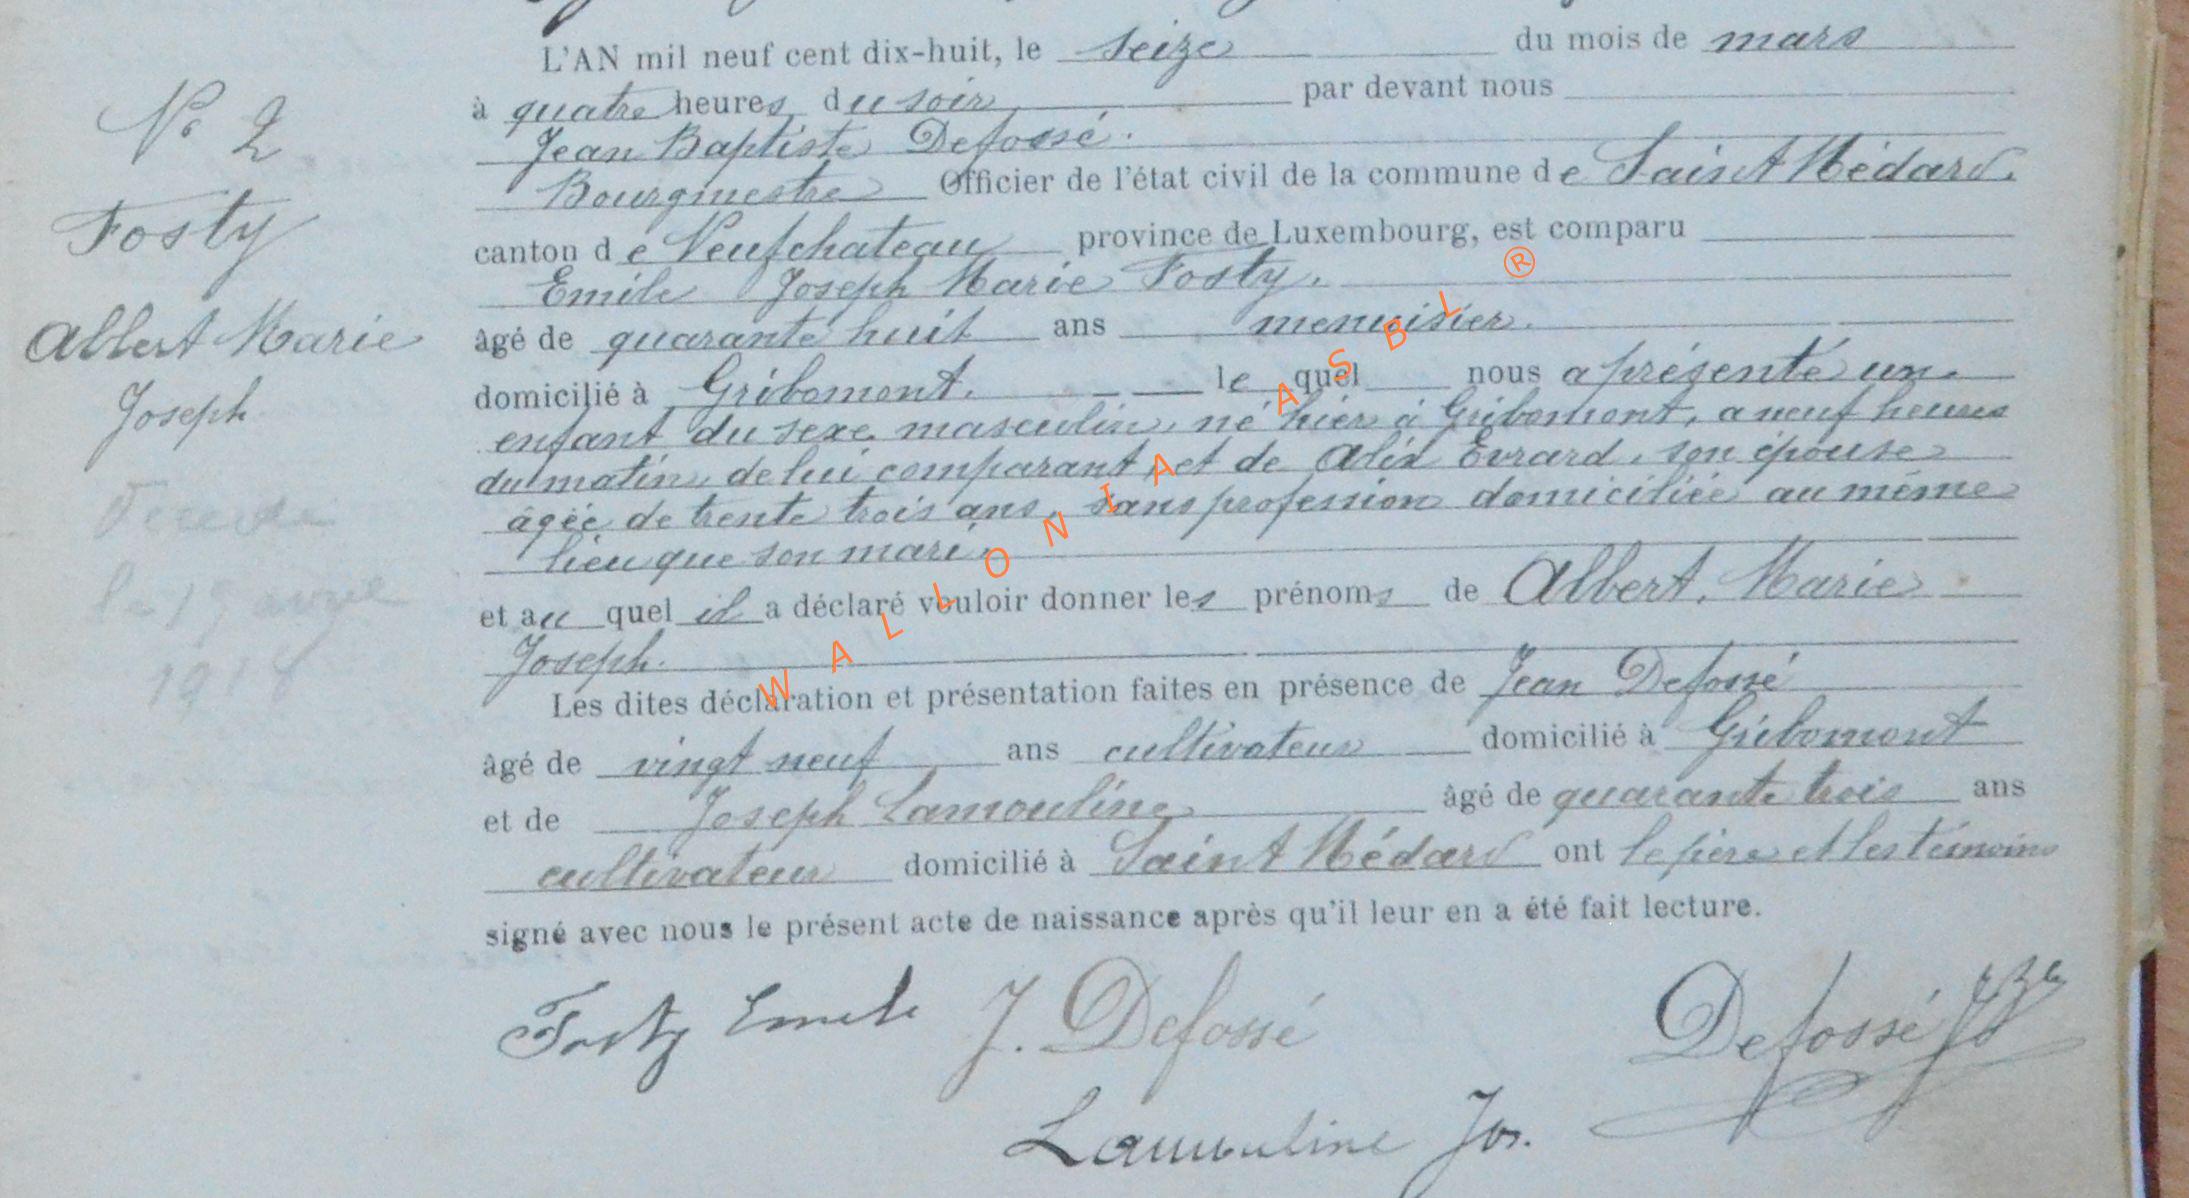 N° 2
Fosty
Albert Marie
Joseph
le 19
1918
L'AN mil neuf cent dix-huit, le seize du mois de mars
à quatre heures du soir par devant nous
Jean Baptiste Defossé.
Bourgmestre Officier de l'état civil de la commune de Saint Médard.
canton de Neufchateau province de Luxembourg, est comparu
Emile Joseph Marie Fosty.
âgé de quarante huit ans menuisier.
domicilié à Gribomont. le quel nous a présenté un
enfant du sexe masculin, né hier à Gribomont, a neuf heures
du matin, de lui comparant, et de Alix Evrard, son épouse
âgée de trente trois ans, sans profession domiciliée au même
lieu que son mari.
et au quel il a déclaré vouloir donner les prénoms de Albert, Marie
Joseph.
Les dites déclaration et présentation faites en présence de Jean Defossé
âgé de vingt neuf ans cultivateur domicilié à Gribomont
et de Joseph Lamouline âgé de quarante trois ans
cultivateur domicilié à Saint Médard ont le père et les témoins
signé avec nous le présent acte de naissance après qu'il leur en a été fait lecture.
Fosty Emile J. Defossé Defossé
Lamouline Jos.
WALLONIA ASBL ®